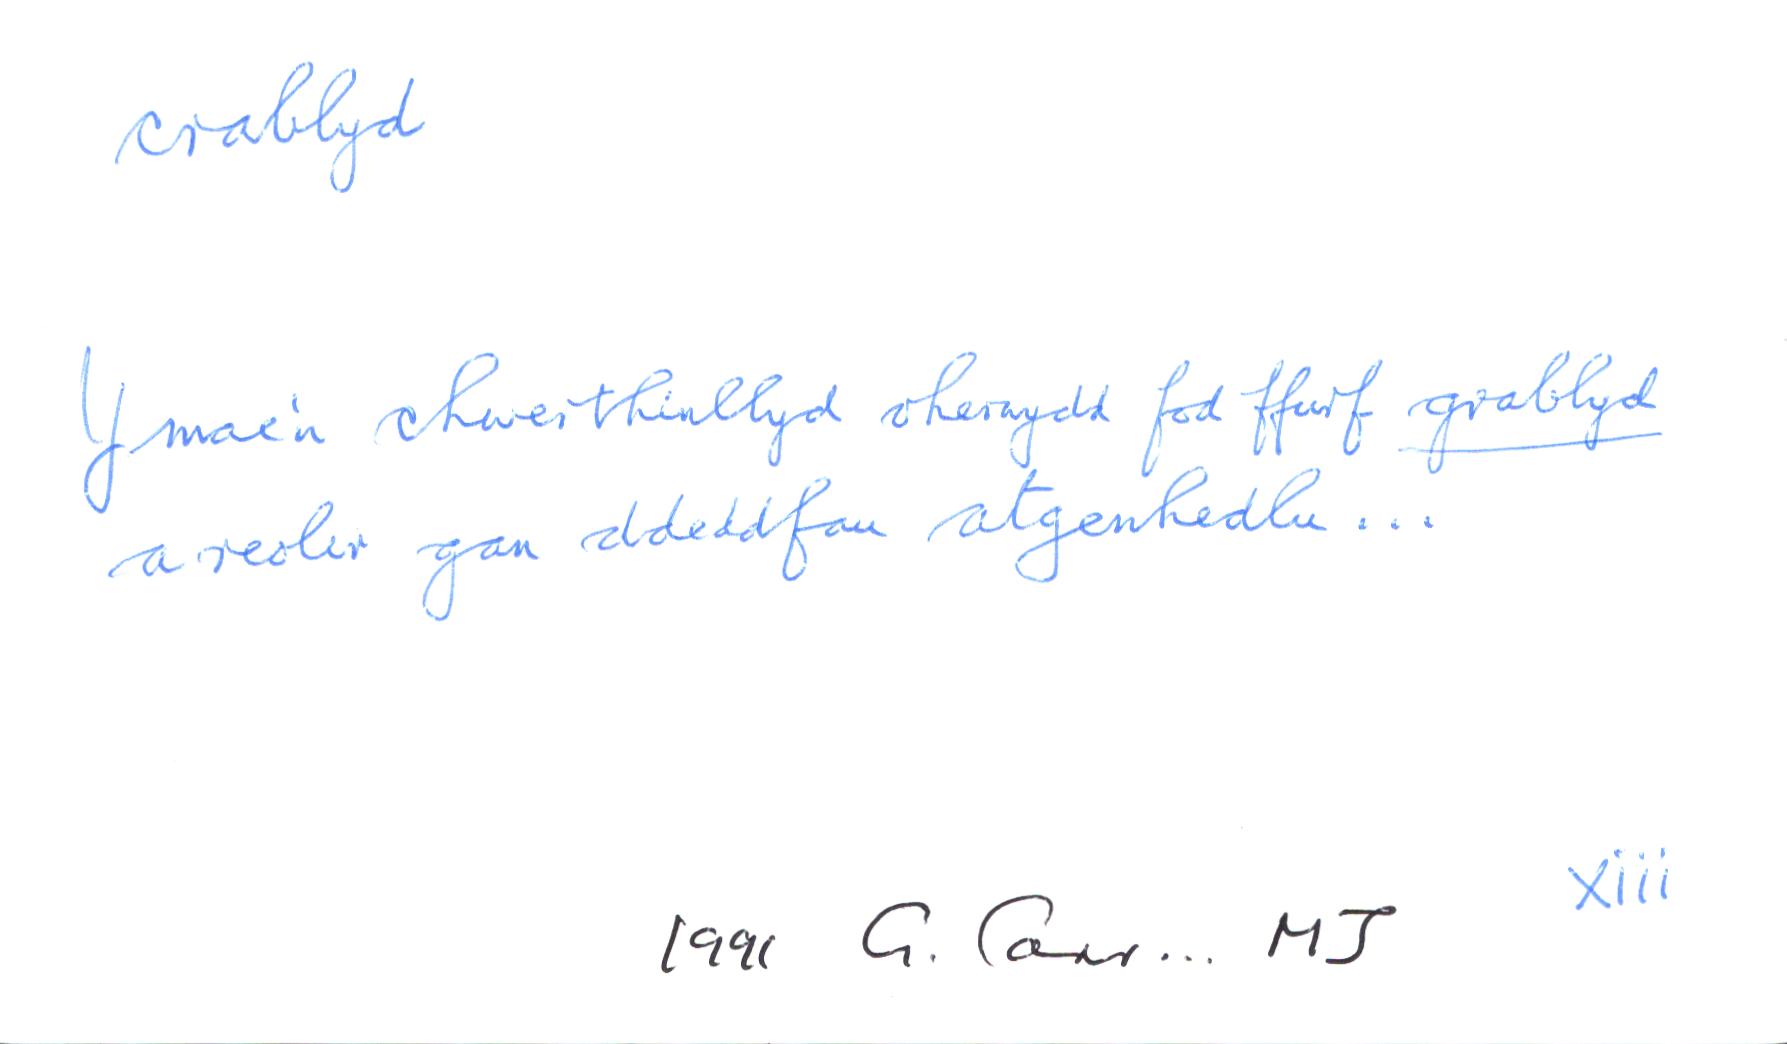 crablyd
Y mae'n chwerthinllyd oherwydd fod ffurf grablyd
a reoler gan ddeddfau atgenhedlu...
xiii
1991 G. Carr... MJ